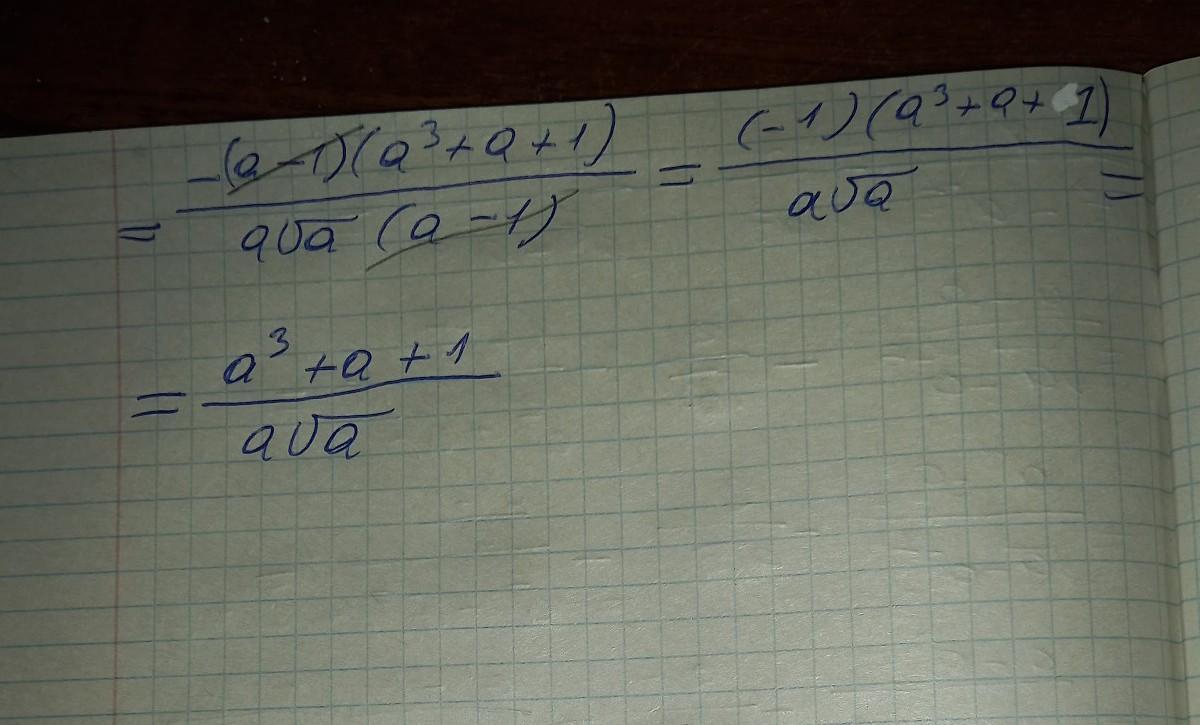 = -(a-1)(a³+a+1) / a√a (a-1) = (-1)(a³+a+1) / a√a =
= a³+a+1 / a√a